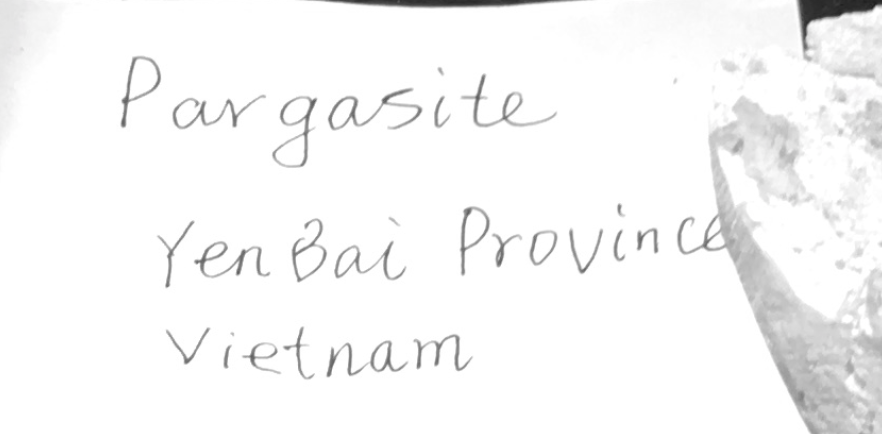 Pargasite
Yen Bai Province
Vietnam